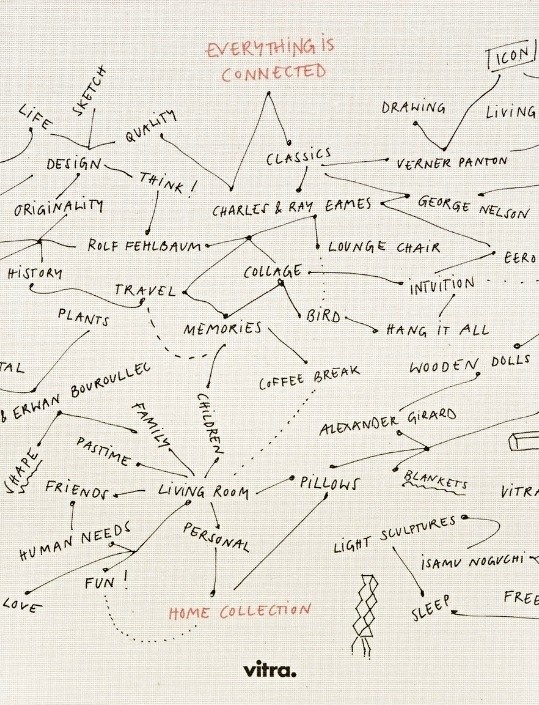 EVERYTHING iS
CONNECTED
ICON
LiFE
SKETCH
QUALiTY
DRAWiNG
LiViNG
DESIGN
THiNK!
CLASSiCS
VERNER PANTON
ORiGiNALiTY
CHARLES & RAY EAMES
GEORGE NELSON
ROLF FEHLBAUM
LOUNGE CHAIR
EERO
HiSTORY
TRAVEL
COLLAGE
iNTUiTiON
PLANTS
MEMORiES
BiRD
HANG iT ALL
TAL
COFFEE BREAK
WOODEN DOLLS
& ERWAN BOUROULLEC
FAMiLY
CHiLDREN
ALEXANDER GiRARD
SHAPE
PASTiME
FRiENDS
LiViNG ROOM
PiLLOWS
BLANKETS
ViTRA
HUMAN NEEDS
PERSONAL
LiGHT SCULPTURES
iSAMU NOGUCHi
FUN!
LOVE
HOME COLLECTiON
SLEEP
FREE
vitra.